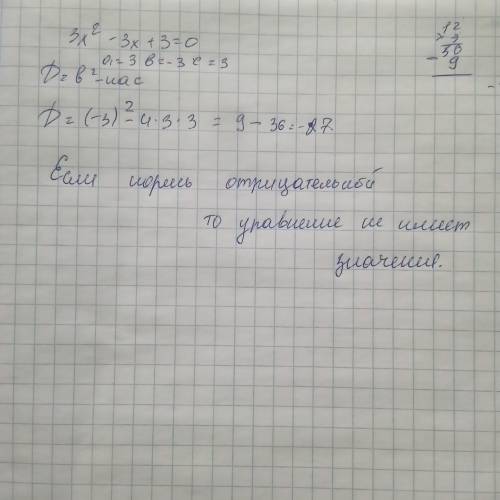 3x² - 3x + 3 = 0
a = 3 в = -3 с = 3
D = в² - 4ас
D = (-3)² - 4 · 3 · 3 = 9 - 36 = -27
Если корень отрицательный
то уравнение не имеет
значения.
12
× 3
36
- 9